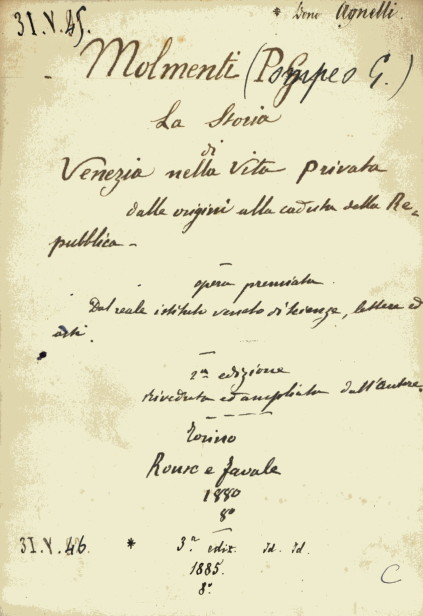 31.V.45.
* Dono Agnelli.
Molmenti (Pompeo G.)
La Storia
di
Venezia nella Vita privata
dalle origini alla caduta della Re=
pubblica -
opera premiata
Dal reale istituto veneto di scienze, lettere ed
arti.
2ª edizione
riveduta ed ampliata dall'autore.
Torino
Roux e Favale
1880
8º
31.V.46. * 3ª ediz. Id. Id.
1885.
8º.
C